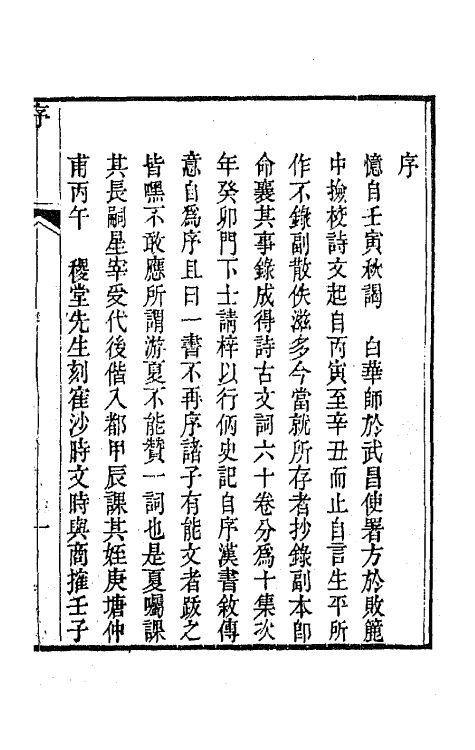 序
憶自壬寅秋謁　白華師於武昌使署方於敗簏
中撿校詩文起自丙寅至辛丑而止自言生平所
作不錄副散佚滋多今當就所存者抄錄副本卽
命襄其事錄成得詩古文詞六十卷分爲十集次
年癸卯門下士請梓以行仿史記自序漢書敘傳
意自爲序且曰一書不再序諸子有能文者跋之
皆嘿不敢應所謂游夏不能贊一詞也是夏囑課
其長嗣星宰受代後偕入都甲辰課其姪庚塘仲
甫丙午　稷堂先生刻寉沙時文時與商搉壬子
序
一